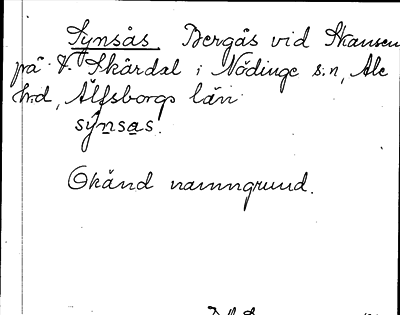 Synsås. Bergås vid Skansen
på V. Skårdal i Nödinge s:n, Ale
h:d, Älfsborgs län.
synsas.
Okänd namngrund.